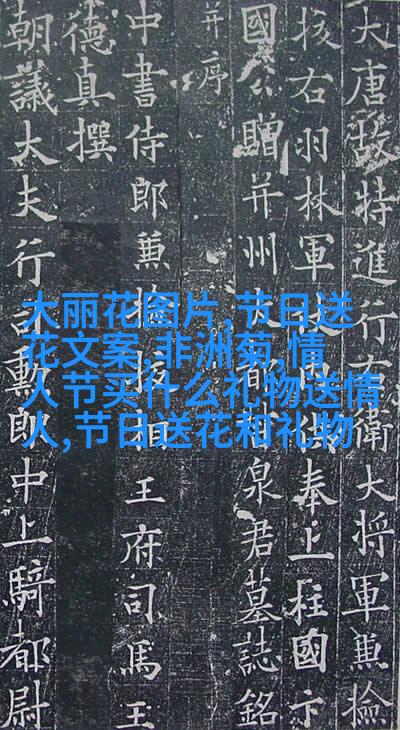 大唐故特進行右衛大將軍兼撿
挍右羽林軍仗內供奉上柱國卞
國公贈并州大都督泉君墓誌銘
并序
中書侍郎兼撿挍相王府司馬王
德真撰
朝議大夫行司勳郎中上騎都尉
大丽花图片,节日送
花文案,非洲菊,情
人节买什么礼物送情
人,节日送花和礼物